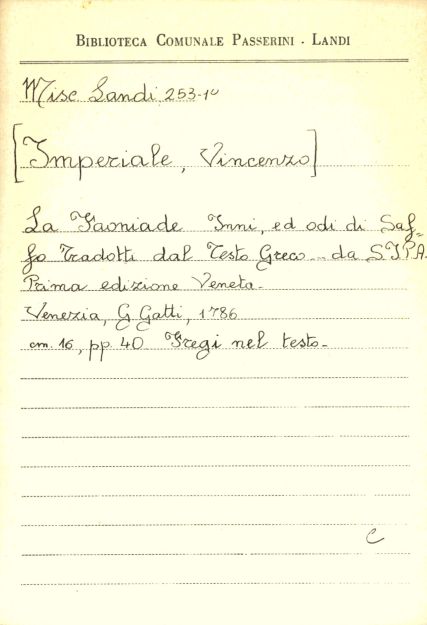 BIBLIOTECA COMUNALE PASSERINI - LANDI
Misc Landi 253-10
[Imperiale, Vincenzo]
La Faoniade Inni, ed odi di Saf=
fo Tradotti dal Testo Greco... da S.I.P.A.
Prima edizione Veneta-
Venezia, G Gatti, 1786
cm. 16, pp 40 Fregi nel testo-
C